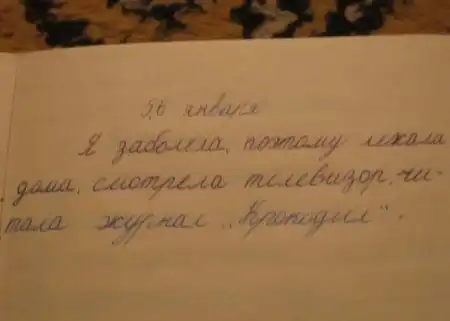 5,6 января
Я заболела, поэтому лежала
дома, смотрела телевизор, чи-
тала журнал „Крокодил“.